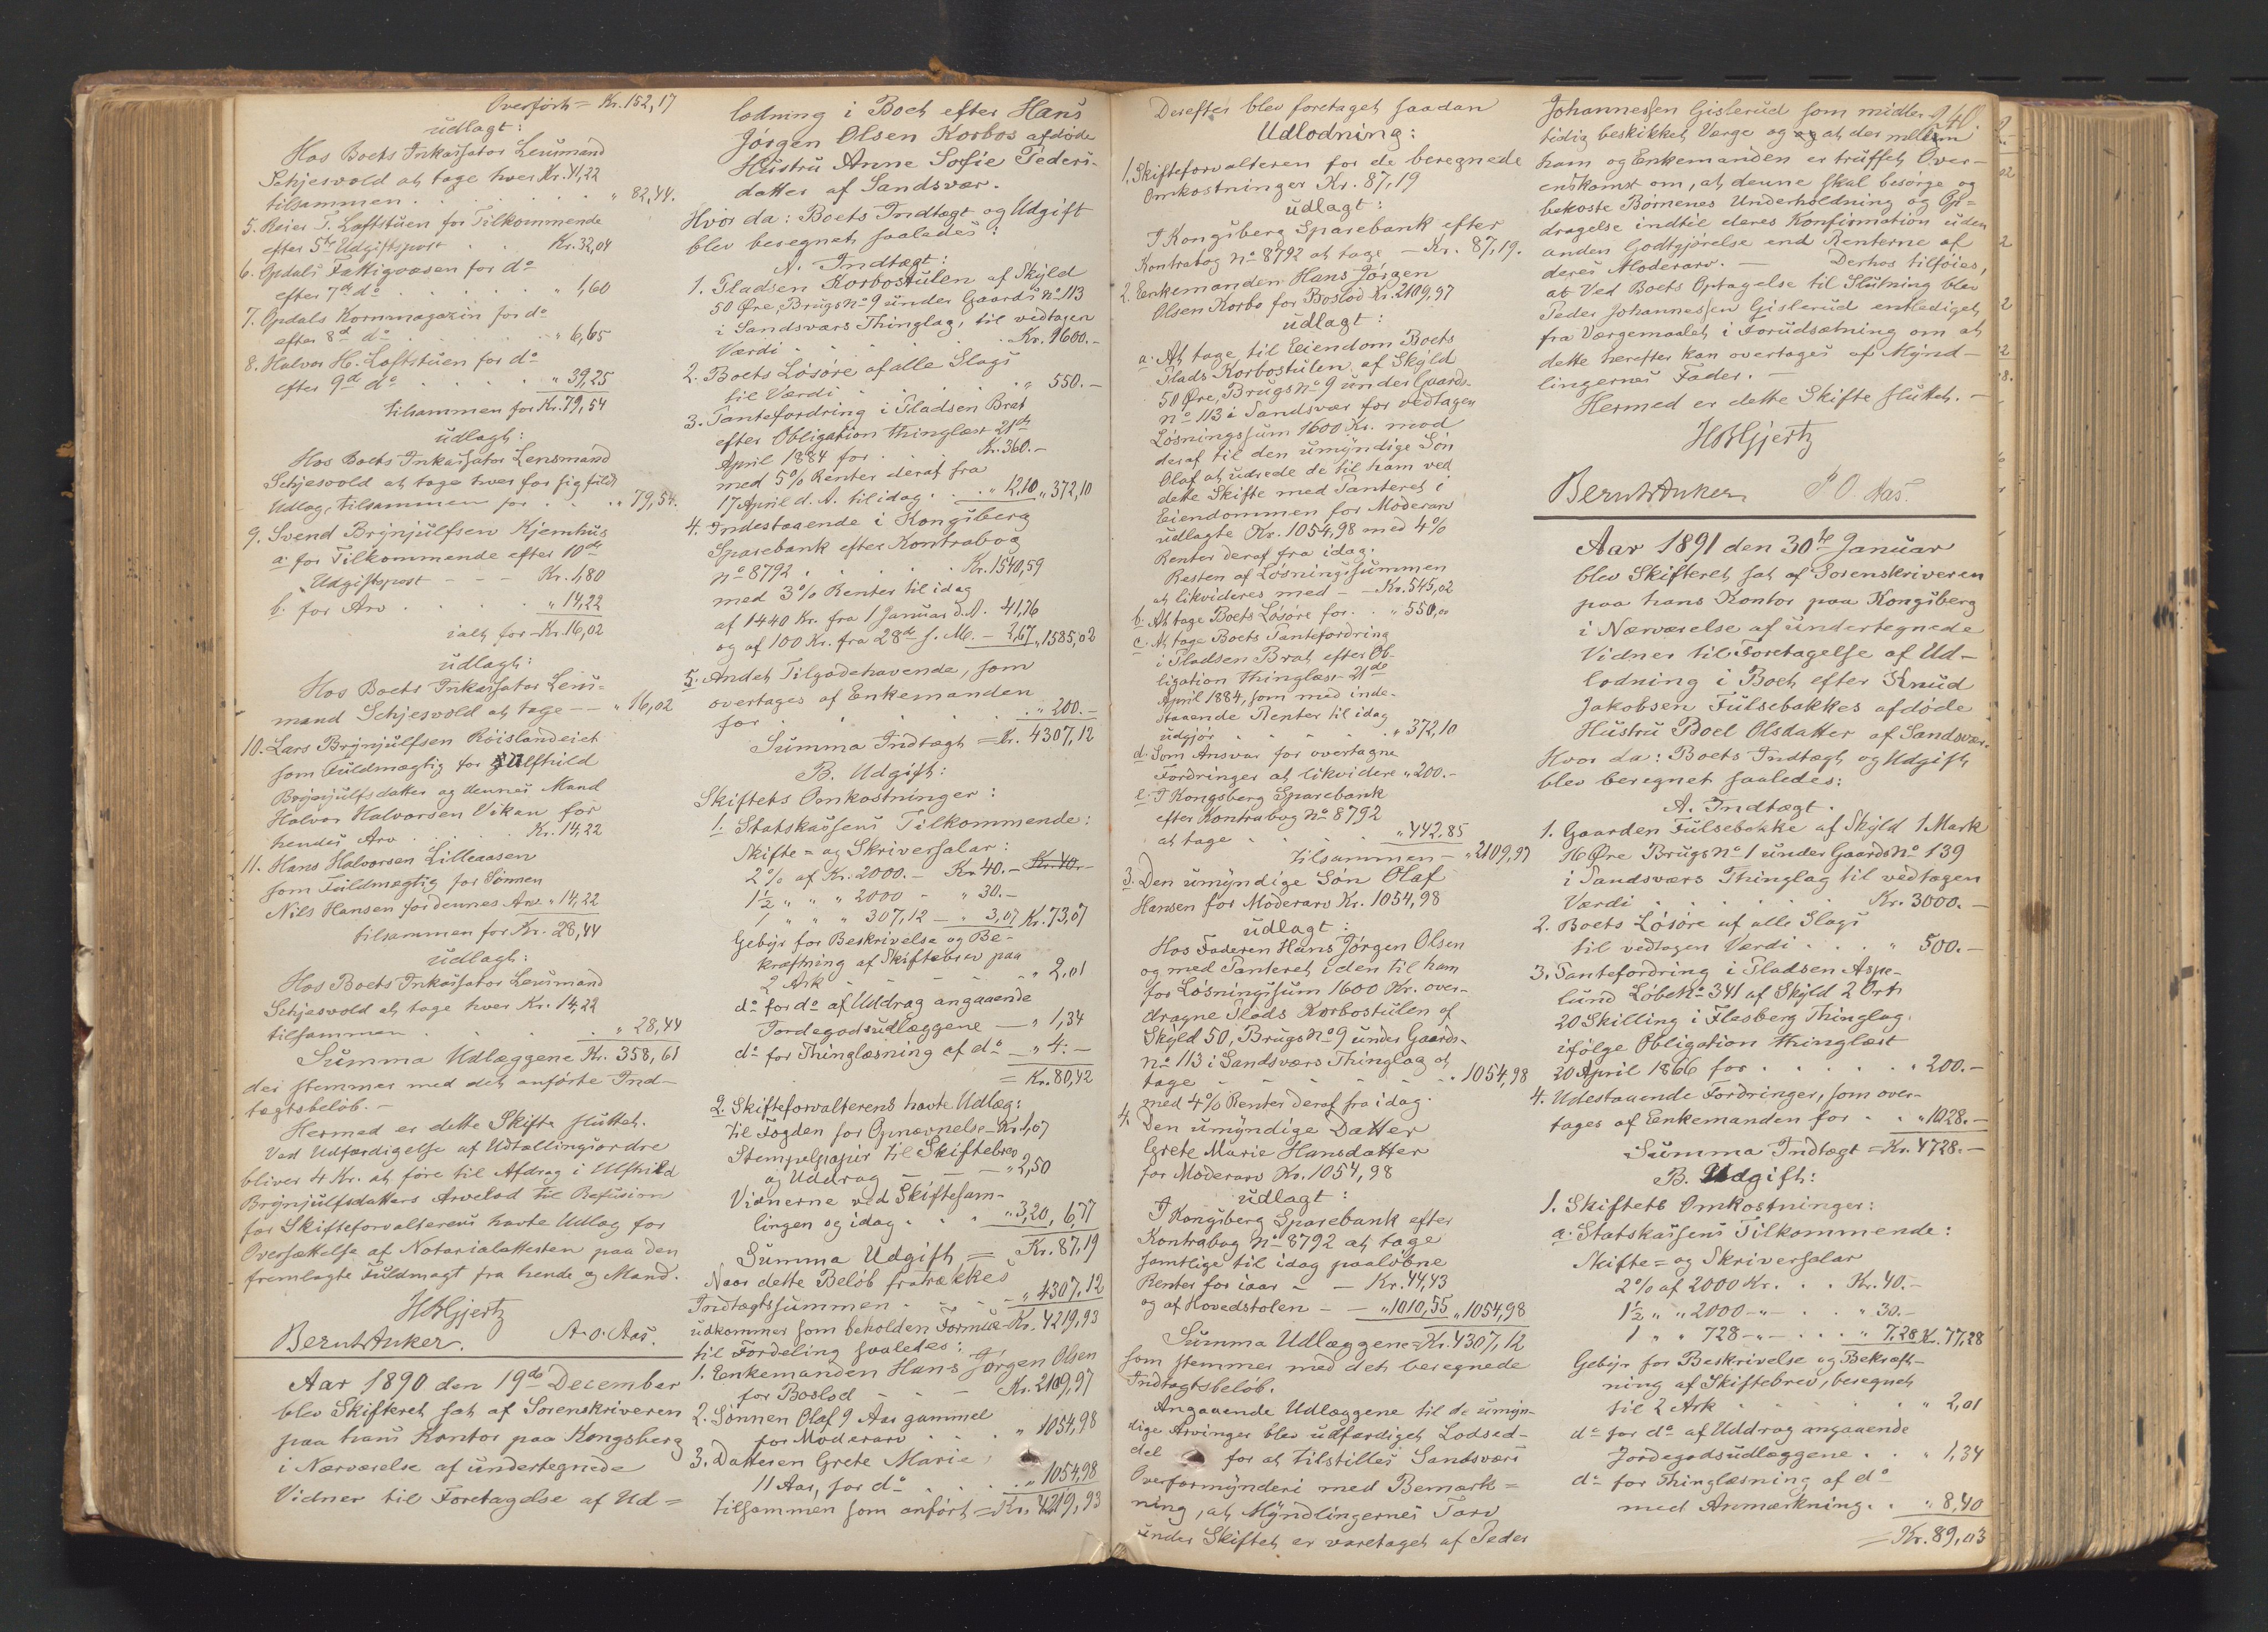 Overført = Kr. 152,17
udlagt:
Hos Boets Inkassator Lensmand
Schjesvold at tage hver Kr. 41,22
tilsammen . . . . . " 82,44.
5. Reier T. Loftstuen for Tilkommende
efter 5te Udgiftspost . . Kr. 32,04
6. Opdals Fattigvæsen for do
efter 7de do . . . . " 1,60
7. Opdals Kornmagazin for do
efter 8de do . . . . " 6,65
8. Halvor H. Loftstuen for do
efter 9de do . . . . " 39,25
tilsammen for Kr. 79,54
udlagt:
Hos Boets Inkassator Lensmand
Schjesvold at tage hver for sig fuldt
Udlæg, tilsammen for . . . " 79,54.
9. Svend Brynjulfsen Kjemhus
a. for Tilkommende efter 10de
Udgiftspost - - - Kr. 1,80
b. for Arv . . . . " 14,22
ialt for - Kr. 16,02
udlagt:
Hos Boets Inkassator Lens-
mand Schjesvold at tage - - " 16,02
10. Lars Brynjulfsen Røislandeiet
som Fuldmægtig for Ulfhild
Brynjulfsdatter og dennes Mand
Halvor Halvorsen Viken for
hendes Arv . . . . Kr. 14,22
11. Hans Halvorsen Lilleaasen
som Fuldmægtig for Sønnen
Nils Hansen for dennes Arv " 14,22
tilsammen for Kr. 28,44
udlagt:
Hos Boets Inkassator Lensmand
Schjesvold at tage hver Kr. 14,22
tilsammen . . . . . " 28,44
Summa Udlæggene Kr. 358,61
der stemmer med det anførte Ind-
tægtsbeløb. -
Hermed er dette Skifte sluttet.
Ved Udfærdigelse af Udtællingsordre
bliver 4 Kr. at føre til Afdrag i Ulfhild
Brynjulfsdatters Arvelod til Refusion
for Skifteforvalterens havte Udlæg for
Oversættelse af Notarialattesten paa den
fremlagte Fuldmagt fra hende og Mand.
HBGjertz
Bernt Anker. A. O. Aas.
Aar 1890 den 19de December
blev Skifteret sat af Sorenskriveren
paa hans Kontor paa Kongsberg
i Nærværelse af undertegnede
Vidner til Foretagelse af Ud=
lodning i Boet efter Hans
Jørgen Olsen Korbos afdøde
Hustru Anne Sofie Peders-
datter af Sandsvær.
Hvor da: Boets Indtægt og Udgift
blev beregnet saaledes:
A. Indtægt:
1. Pladsen Korbostulen af Skyld
50 Øre, Brugs No 9 under Gaards No 113
i Sandsværs Thinglag, til vedtagen
Værdi . . . . . Kr. 1600.-
2. Boets Løsøre af alle Slags
til Værdi . . . . . " 550.-
3. Pantefordring i Pladsen Brat
efter Obligation thinglæst 21de
April 1884 for . . . Kr. 360.-
med 5% Renter deraf fra
17 April d. A. til idag . . " 12,10 " 372,10
4. Indestaaende i Kongsberg
Sparebank efter Kontrabog
No 8792 . . . . . Kr. 1540,59
med 3% Renter til idag
af 1440 Kr. fra 1 Januar d. A. 41,76
og af 100 Kr. fra 28de f. M. - 2,67 " 1585,02
5. Andet Tilgodehavende, som
overtages af Enkemanden
for . . . . . . " 200.-
Summa Indtægt = Kr. 4307,12
B. Udgift:
Skiftets Omkostninger:
1. Statskassens Tilkommende:
Skifte= og Skriversalar:
2% af Kr. 2000.- Kr. 40.- Kr. 40.-
1½ " " " 2000 - " 30.-
1 " " " 307,12 - " 3,07 Kr. 73,07
Gebyr for Beskrivelse og Be-
kræftning af Skiftebrev paa
2 Ark - - - - " 2,01
do for do af Uddrag angaaende
Jordegodsudlæggene - " 1,34
do for Thinglæsning af do - " 4.-
= Kr. 80,42
2. Skifteforvalterens havte Udlæg:
Til Fogden for Opnævnelse - Kr. 1,07
Stempelpapir til Skiftebrev
og Uddrag - - - - " 2,50
Vidnerne ved Skiftesam-
lingen og idag . . . " 3,20 " 6,77
Summa Udgift = Kr. 87,19
Naar dette Beløb fratrækkes
Indtægtssummen . . . - " 4307,12
udkommer som beholden Formue - Kr. 4219,93
til Fordeling saaledes:
1. Enkemanden Hans Jørgen Olsen
for Boslod - - - Kr. 2109,97
2. Sønnen Olaf 9 Aar gammel
for Moderarv . . . " 1054,98
3. Datteren Grete Marie,
11 Aar, for do . . . . " 1054,98
tilsammen som anført = Kr. 4219,93
Derefter blev foretaget saadan
Udlodning:
1. Skifteforvalteren for de beregnede
Omkostninger Kr. 87,19
udlagt:
I Kongsberg Sparebank efter
Kontrabog No 8792 at tage - Kr. 87,19.
2. Enkemanden Hans Jørgen
Olsen Korbo for Boslod Kr. 2109,97
udlagt:
a. At tage til Eiendom Boets
Plads Korbostulen af Skyld
50 Øre, Brugs No 9 under Gaards-
No 113 i Sandsvær for vedtagen
Løsningssum 1600 Kr. mod
deraf til den umyndige Søn
Olaf at udrede de til ham ved
dette Skifte med Panteret i
Eiendommen for Moderarv
udlagte Kr. 1054,98 med 4%
Renter deraf fra idag.
Resten af Løsningssummen
at likvideres med - - Kr. 545,02
b. At tage Boets Løsøre for . . " 550,00
c. At tage Boets Pantefordring
i Pladsen Brat efter Ob-
ligation thinglæst 21de
April 1884, som med inde-
staaende Renter til idag
udgjør . . . . " 372,10
d. Som Ansvar for overtagne
Fordringer at likvidere " 200.-
e. I Kongsberg Sparebank
efter Kontrabog No 8792
at tage . . . . " 442,85
tilsammen - " 2109,97
3. Den umyndige Søn Olaf
Hansen for Moderarv Kr. 1054,98
udlagt:
Hos Faderen Hans Jørgen Olsen
og med Panteret i den til ham
for Løsningssum 1600 Kr. over-
dragne Plads Korbostulen af
Skyld 50, Brugs No 9 under Gaards-
No 113 i Sandsværs Thinglag at
tage - - - - - - " 1054,98
med 4% Renter deraf fra idag.
4. Den umyndige Datter
Grete Marie Hansdatter
for Moderarv Kr. 1054,98
udlagt:
I Kongsberg Sparebank efter
Kontrabog No 8792 at tage
samtlige til idag paaløbne
Renter for iaar - - Kr. 44,43
og af Hovedstolen - - " 1010,55 " 1054,98
Summa Udlæggene = Kr. 4307,12
som stemmer med det beregnede
Indtægtsbeløb.
Angaaende Udlæggene til de umyn-
dige Arvinger blev udfærdiget Lodsed-
del for at tilstilles Sandsværs
Overformynderi med Bemærk=
ning, at Myndlingernes Tarv
under Skiftet er varetaget af Peder
240.
Johannessen Gislerud som midler-
tidig beskikket Værge og at der mellem
ham og Enkemanden er truffet Over-
enskomst om, at denne skal besørge og
bekoste Børnenes Underholdning og Op=
dragelse indtil deres Konfirmation uden
anden Godtgjørelse end Renterne af
deres Moderarv. - Derhos tilføies,
at Ved Boets Optagelse til Slutning blev
Peder Johannessen Gislerud entlediget
fra Værgemaalet i Forudsætning om at
dette herefter kan overtages af Mynd-
lingernes Fader. -
Hermed er dette Skifte sluttet. -
HBGjertz
Bernt Anker P O Aas.
Aar 1891 den 30te Januar
blev Skifteret sat af Sorenskriveren
paa hans Kontor paa Kongsberg
i Nærværelse af undertegnede
Vidner til Foretagelse af Ud-
lodning i Boet efter Knud
Jakobsen Fulsebakkes afdøde
Hustru Boel Olsdatter af Sandsvær.
Hvor da: Boets Indtægt og Udgift
blev beregnet saaledes:
A. Indtægt.
1. Gaarden Fulsebakke af Skyld 1 Mark
16 Øre Brugs No 1 under Gaards No 139
i Sandsværs Thinglag til vedtagen
Værdi . . . . . Kr. 3000.-
2. Boets Løsøre af alle Slags
til vedtagen Værdi . . . " 500.-
3. Pantefordring i Pladsen Aspe-
lund Løbe No 341 af Skyld 2 Ort
20 Skilling i Flesberg Thinglag,
ifølge Obligation thinglæst
20 April 1866 for . . . . . " 200.-
4. Udestaaende Fordringer, som over-
tages af Enkemanden for . . " 1028.-
Summa Indtægt = Kr. 4728.-
B. Udgift:
1. Skiftets Omkostninger:
a. Statskassens Tilkommende:
Skifte= og Skriversalar
2% af 2000 Kr. . . Kr. 40.-
1½ " " 2000 - " - . . " 30.-
1 " " 728 - " - . . . " 7,28 Kr. 77,28
Gebyr for Beskrivelse og Bekræft-
ning af Skiftebrev, beregnet
til 2 Ark . . . . . " 2,01
do for do af Uddrag angaaende
Jordegodsudlæggene . . " 1,34
do for Thinglæsning af do
med Anmærkning . . " 8,40
= Kr. 89,03